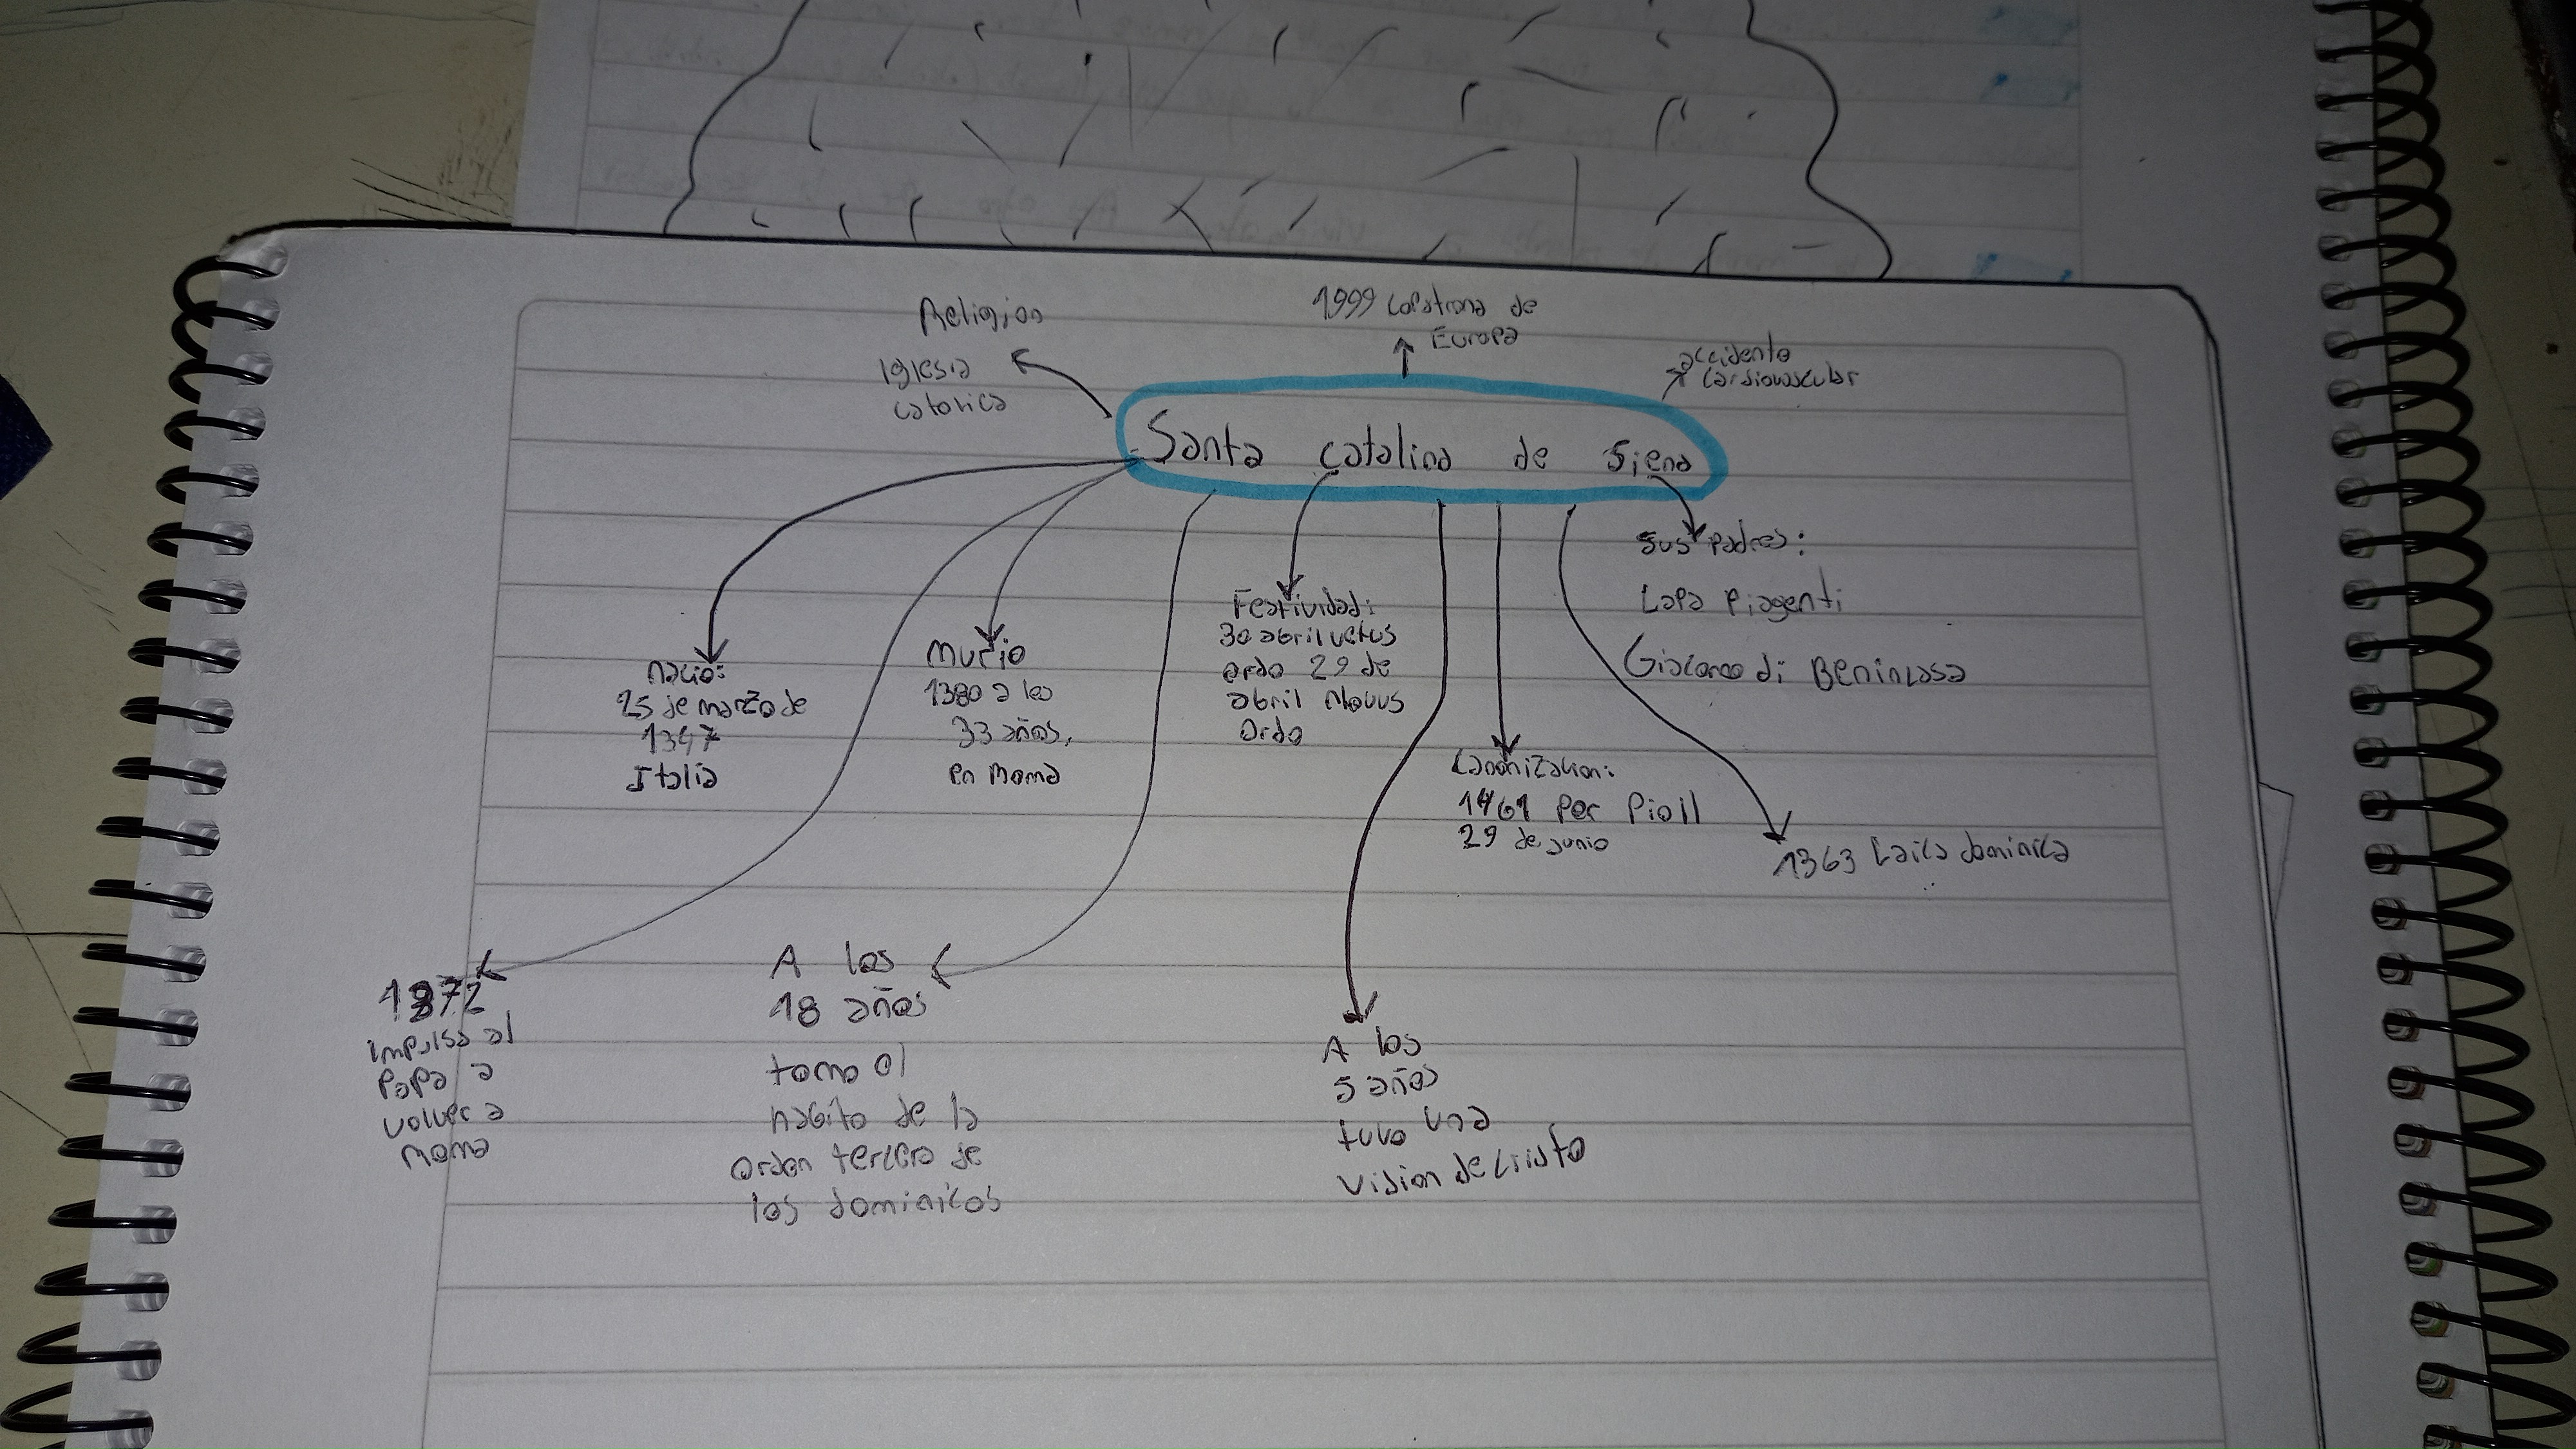 Religion
Iglesia
catolica
1999 copatrona de
Europa
accidente
cardiovascular
Santa catalina de Siena
Sus padres:
Lapa Piagenti
Giacomo di Benincasa
nacio:
25 de marzo de
1347
Italia
Murio
1380 a los
33 años,
en Roma
Festividad:
30 abril vetus
ordo 29 de
abril Novus
Ordo
Canonizacion:
1461 por Pio II
29 de junio
1363 Laica dominica
1372
impulsa al
Papa a
volver a
Roma
A los
18 años
tomo el
habito de la
orden tercera de
los dominicos
A los
5 años
tuvo una
vision de cristo